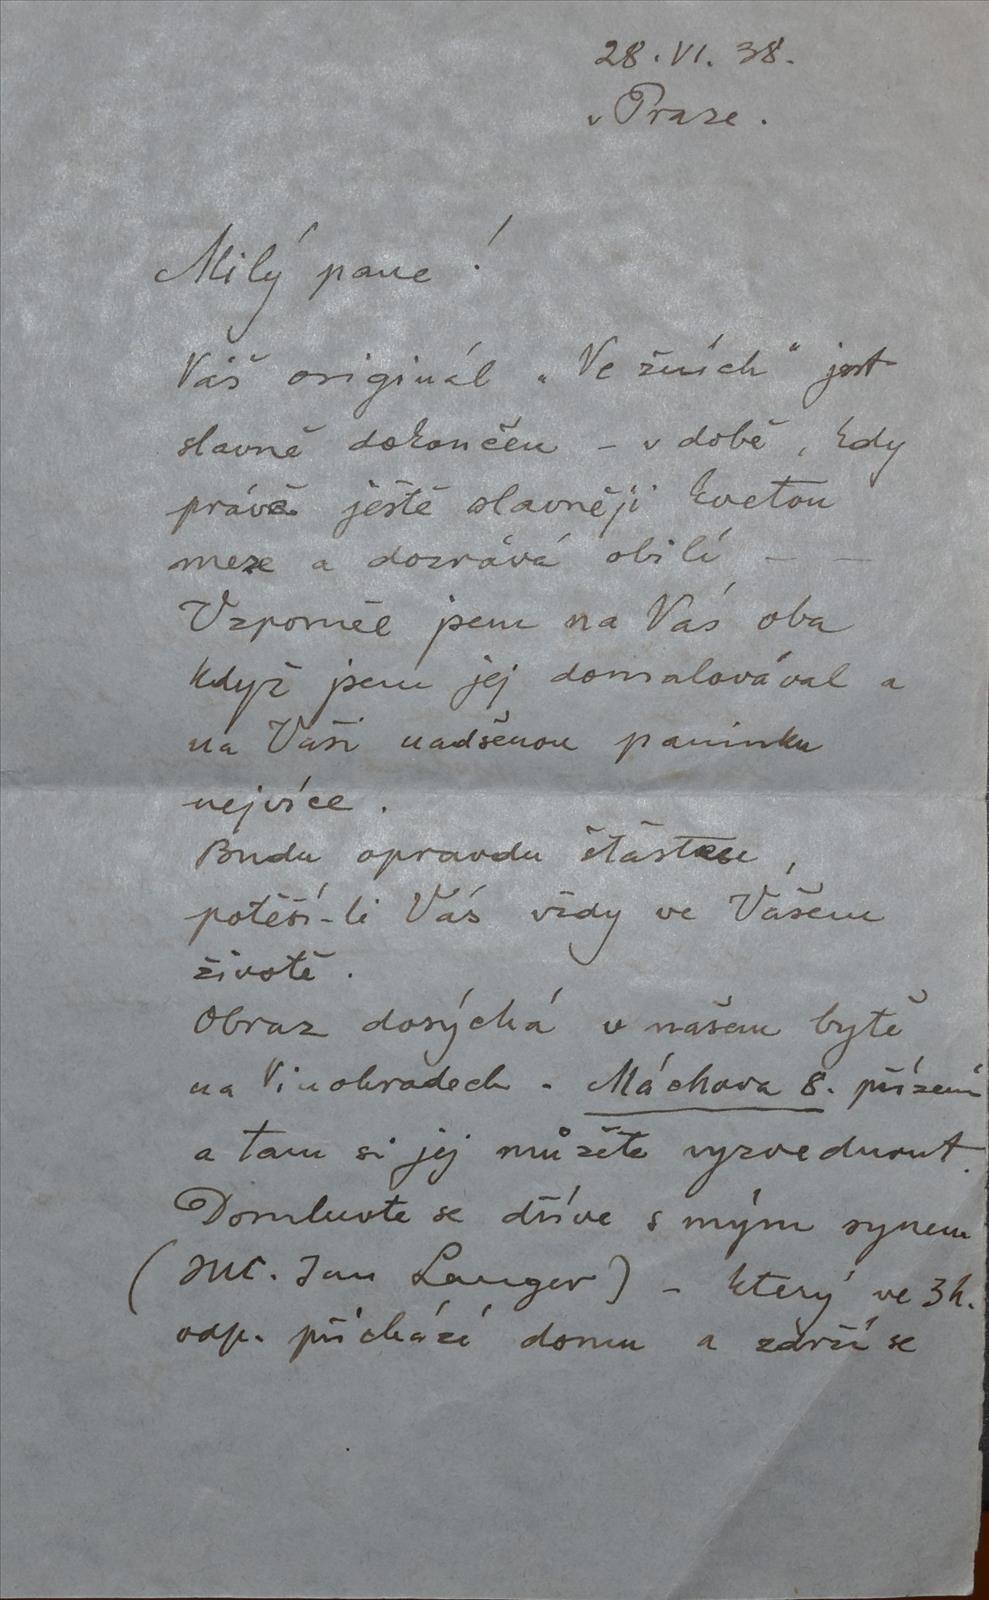 28. VI. 38.
v Praze.
Milý pane!
Váš originál „Ve žních" jest
slavně dokončen – v době, kdy
právě ještě slavněji kvetou
meze a dozrává obilí – –
Vzpoměl jsem na Vás oba
když jsem jej domalovával a
na Vaši nadšenou paninku
nejvíce.
Budu opravdu šťasten,
potěší-li Vás vždy ve Vašem
životě.
Obraz dosýchá v našem bytě
na Vinohradech - Máchova 8. přízemí
a tam si jej můžete vyzvednout.
Domluvte se dříve s mým synem
( Jan Langer) – který ve 3 h.
odp. přichází domu a zdrží se